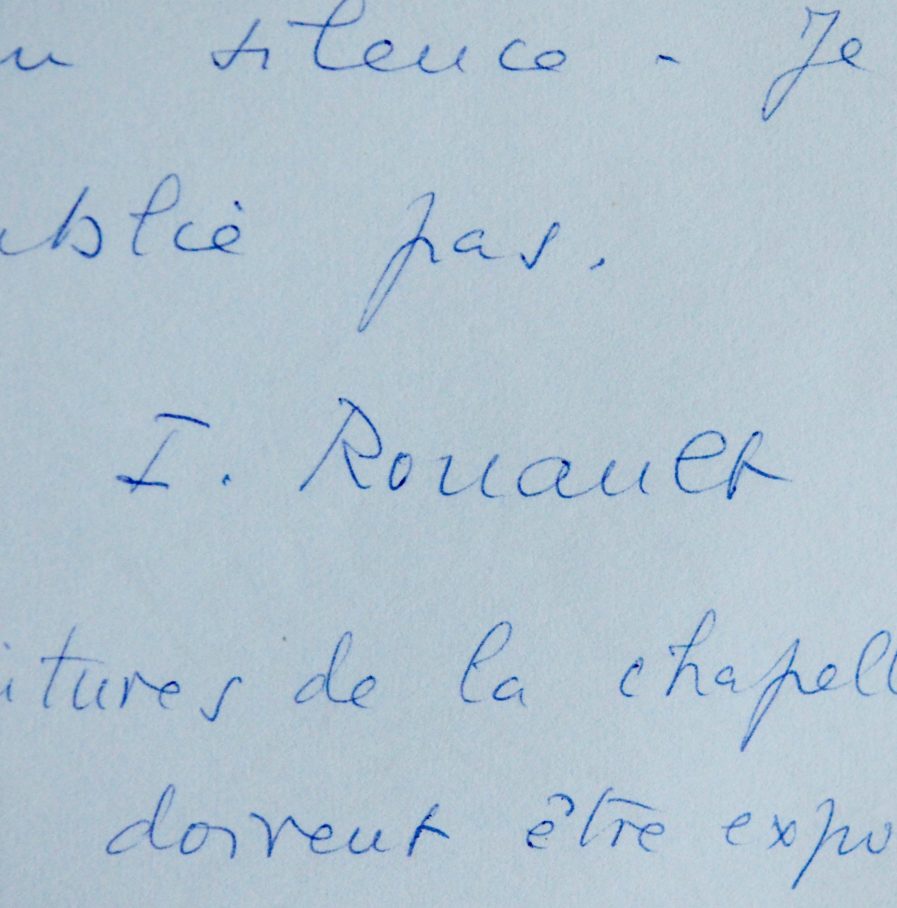 silence - Je
pas.
I. Rouault
itures de la chapell
doivent être expo